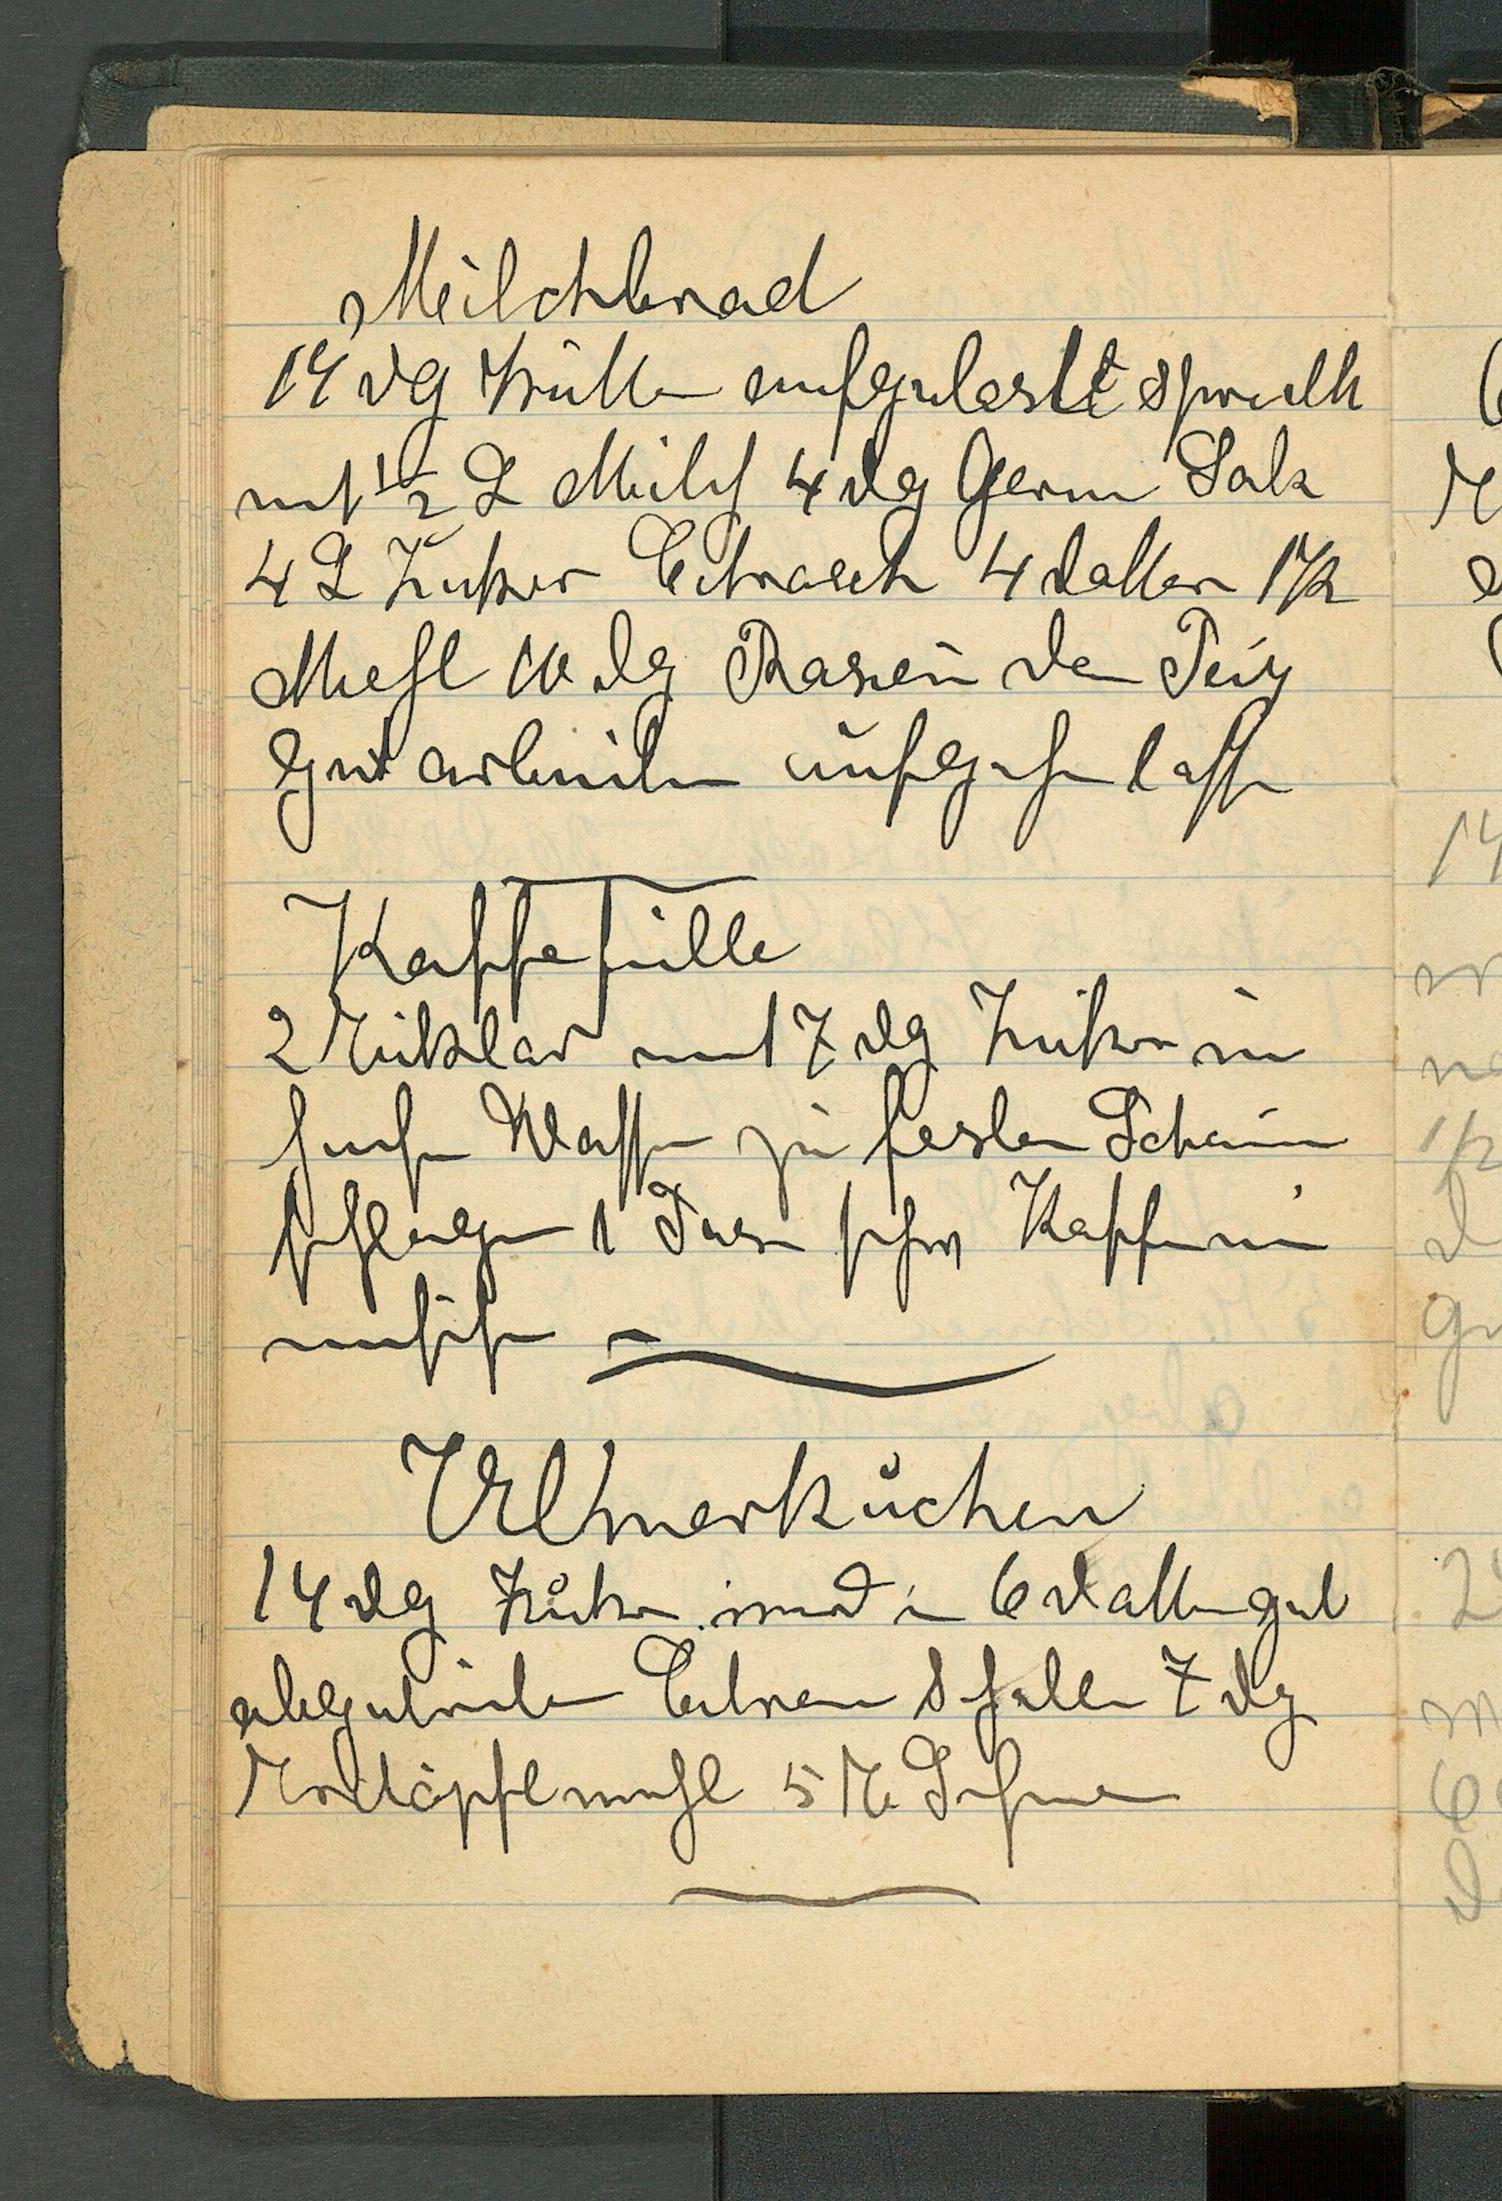 Milchbrad
14 dg Butter aufgelest sprudlt
mit 1/2 L Milch 4 dg Germ Salz
4 L Zucker Citrasch 4 Datter 1 K
Mehl 10 dg Rasein den Teig
gut arbeiten aufgehen lassen
Kaffefülle
2 Eiklar mit 7 dg Zucker in
heisen Wasser zu festen Schaum
schlagen 1 Tase schw Kaffe ein
mischen
Ulmerkuchen
14 dg Zucker wird in 6 Datter gut
abgetrieben Citronen Schalen 7 dg
Erdäpfelmehl 5 K Schnee
14
1/2